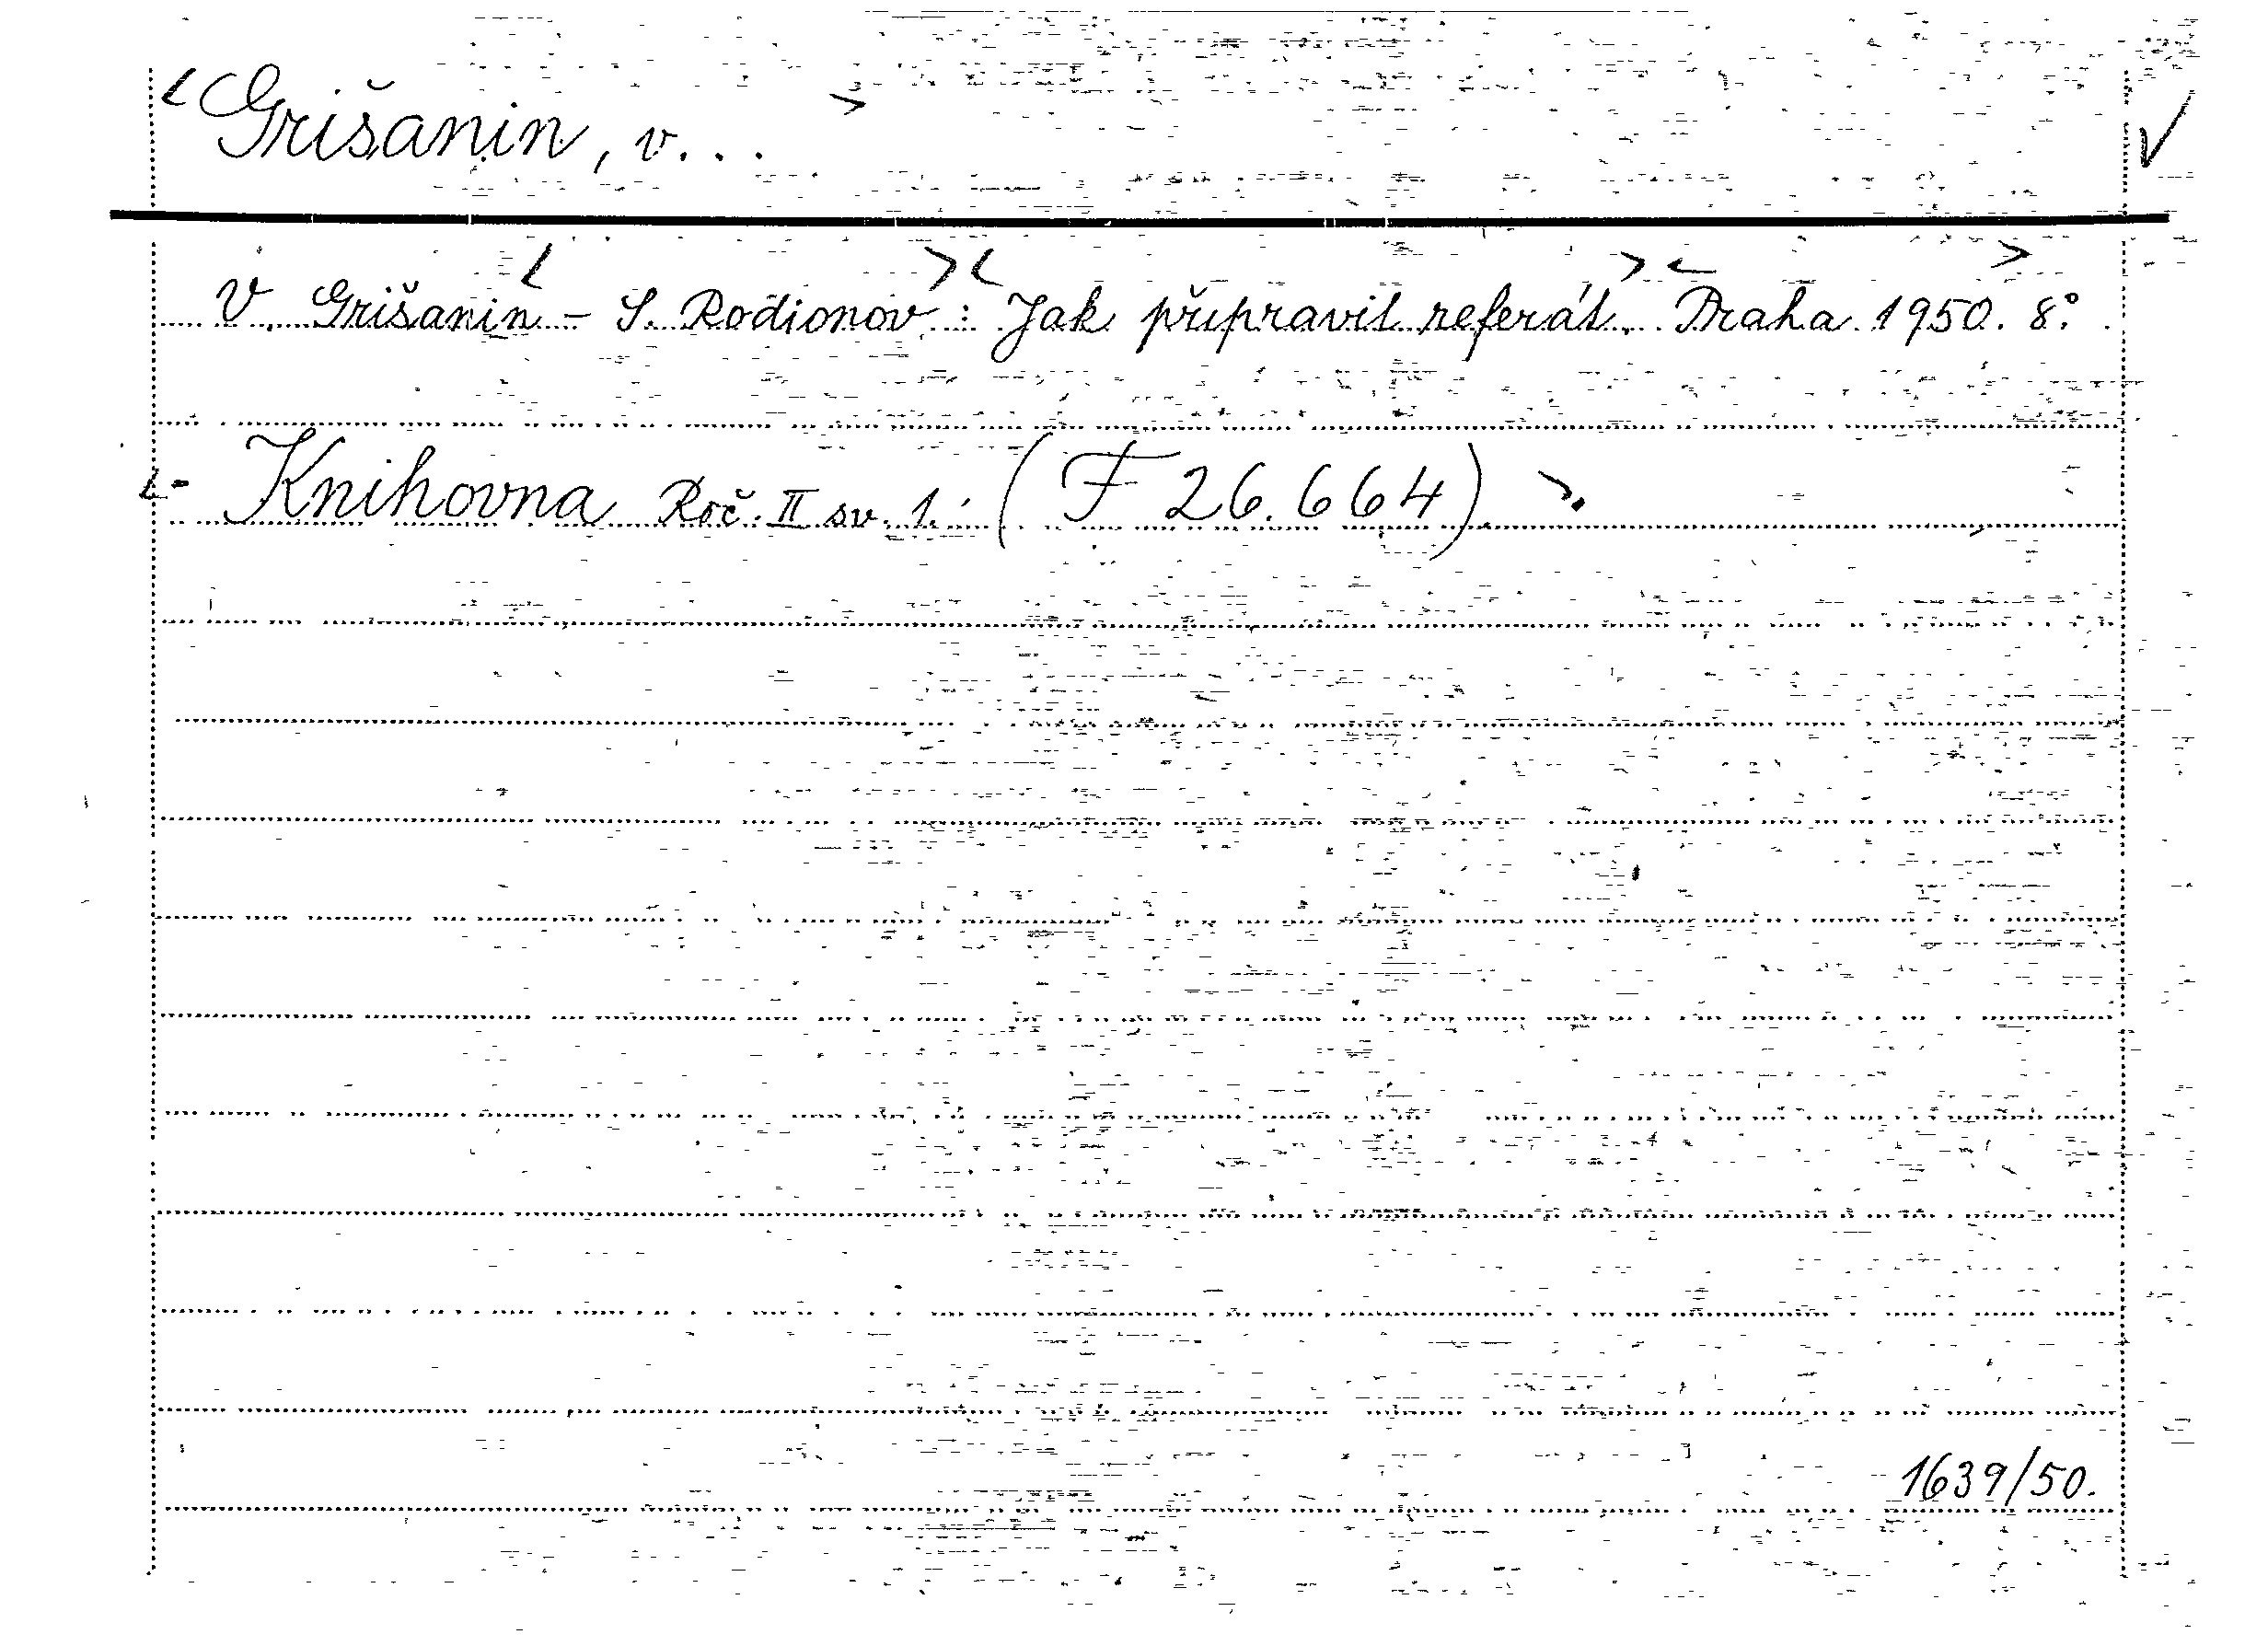 Grišanin, v...
V. Grišanin - S. Rodionov: Jak připravit referát. Praha 1950. 8°.
Knihovna Roč. II sv. 1. (F 26.664).
1639/50.